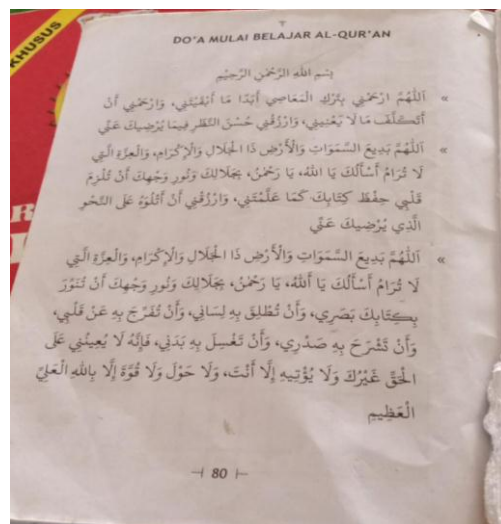 KHUSUS
DO'A MULAI BELAJAR AL-QUR'AN
بِسْمِ اللهِ الرَّحْمٰنِ الرَّحِيْمِ
» اَللّٰهُمَّ ارْحَمْنِي بِتَرْكِ الْمَعَاصِي أَبَدًا مَا أَبْقَيْتَنِي، وَارْحَمْنِي أَنْ
أَتَكَلَّفَ مَا لَا يَعْنِينِي، وَارْزُقْنِي حُسْنَ النَّظَرِ فِيمَا يُرْضِيكَ عَنِّي
» اَللّٰهُمَّ بَدِيعَ السَّمَوَاتِ وَالْأَرْضِ ذَا الْجَلَالِ وَالْإِكْرَامِ، وَالْعِزَّةِ الَّتِي
لَا تُرَامُ أَسْأَلُكَ يَا اَللهُ، يَا رَحْمٰنُ، بِجَلَالِكَ وَنُورِ وَجْهِكَ أَنْ تُلْزِمَ
قَلْبِي حِفْظَ كِتَابِكَ كَمَا عَلَّمْتَنِي، وَارْزُقْنِي أَنْ أَتْلُوَهُ عَلَى النَّحْوِ
الَّذِي يُرْضِيكَ عَنِّي
» اَللّٰهُمَّ بَدِيعَ السَّمَوَاتِ وَالْأَرْضِ ذَا الْجَلَالِ وَالْإِكْرَامِ، وَالْعِزَّةِ الَّتِي
لَا تُرَامُ أَسْأَلُكَ يَا أَللهُ، يَا رَحْمٰنُ، بِجَلَالِكَ وَنُورِ وَجْهِكَ أَنْ تُنَوِّرَ
بِكِتَابِكَ بَصَرِي، وَأَنْ تُطْلِقَ بِهِ لِسَانِي، وَأَنْ تُفَرِّجَ بِهِ عَنْ قَلْبِي،
وَأَنْ تَشْرَحَ بِهِ صَدْرِي، وَأَنْ تَغْسِلَ بِهِ بَدَنِي، فَإِنَّهُ لَا يُعِينُنِي عَلَى
الْحَقِّ غَيْرُكَ وَلَا يُؤْتِيهِ إِلَّا أَنْتَ، وَلَا حَوْلَ وَلَا قُوَّةَ إِلَّا بِاللهِ الْعَلِيِّ
الْعَظِيمِ
80